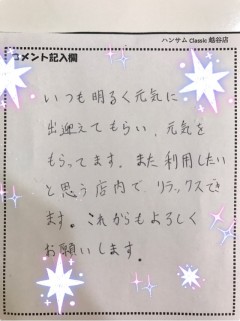 ハンサム Classic 越谷店
コメント記入欄
いつも明るく元気に
出迎えてもらい、元気を
もらってます。また利用したい
と思う店内で、リラックスでき
ます。これからもよろしく
お願いします。